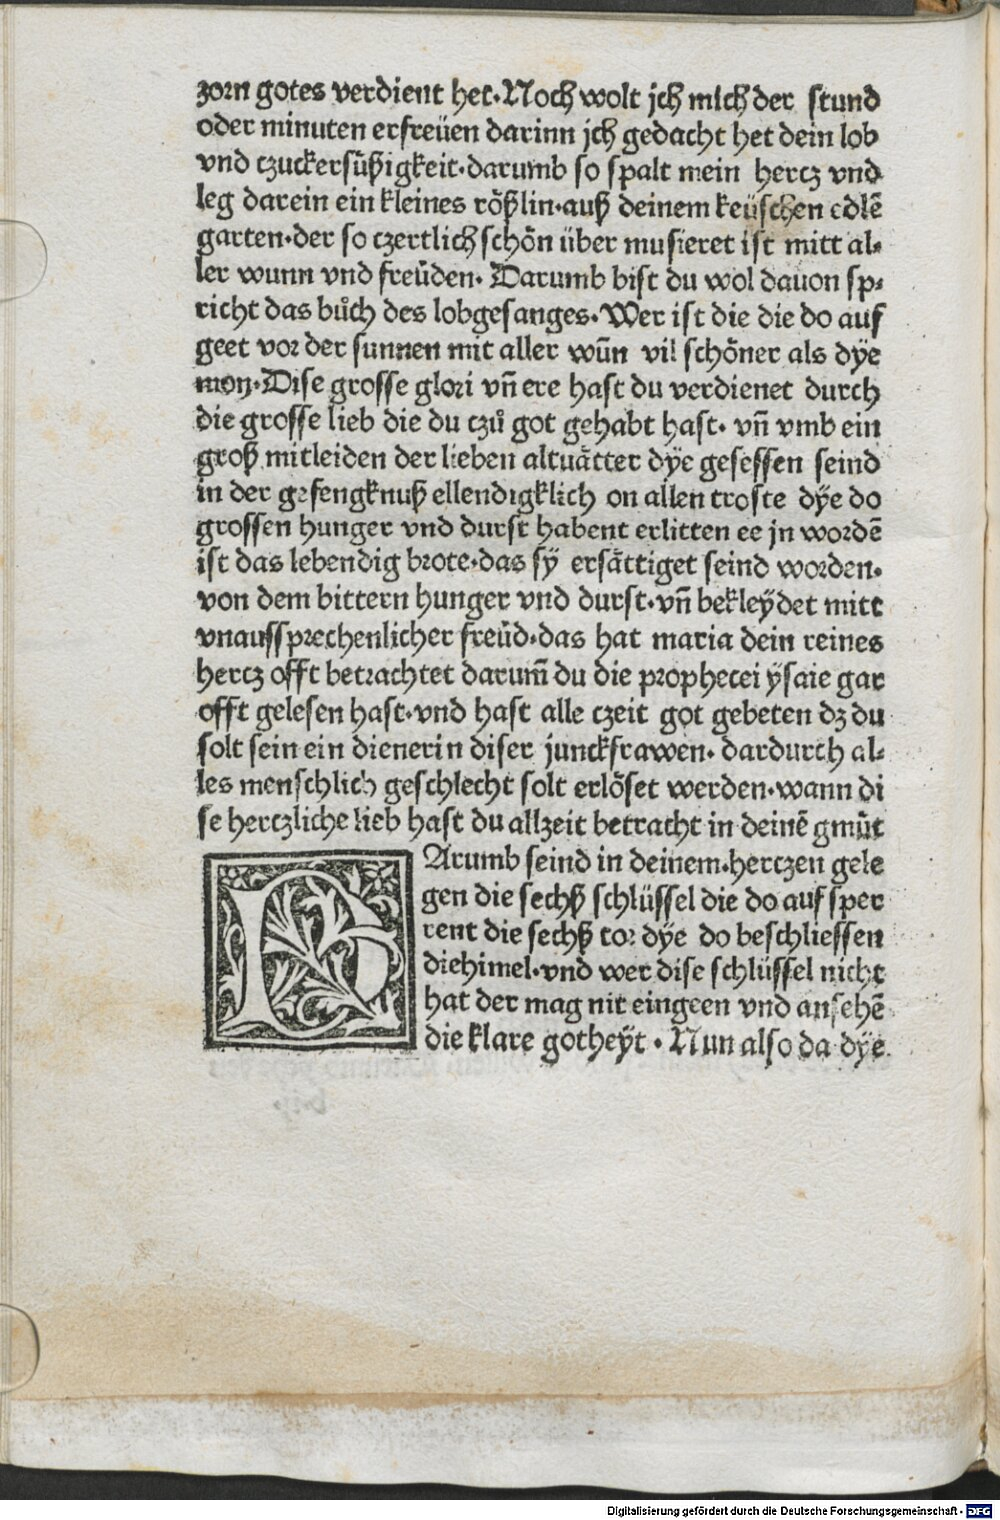 zorn gotes verdient het·Noch wolt jch mich der stund
oder minuten erfreüen darinn jch gedacht het dein lob
vnd czuckersüßigkeit·darumb so spalt mein hertz vnd
leg darein ein kleines rößlin·auß deinem keüschen edlē
garten·der so czertlich schön über musieret ist mitt al⸗
ler wunn vnd freüden· Darumb bist du wol dauon sp⸗
richt das bůch des lobgesanges·Wer ist die die do auf
geet vor der sunnen mit aller wūn vil schöner als dÿe
mon·Dise grosse glori vn̄ ere hast du verdienet durch
die grosse lieb die du czů got gehabt hast· vn̄ vmb ein
groß mitleiden der lieben altuätter dÿe gesessen seind
in der gefengknuß ellendigklich on allen troste dÿe do
grossen hunger vnd durst habent erlitten ee jn wordē
ist das lebendig brote·das sÿ ersättiget seind worden·
von dem bittern hunger vnd durst·vn̄ bekleÿdet mitt
vnaussprechenlicher freüd·das hat maria dein reines
hertz offt betrachtet darum̄ du die prophecei ÿsaie gar
offt gelesen hast·vnd hast alle czeit got gebeten dz du
solt sein ein dienerin diser junckfrawen· dardurch al⸗
les menschlich geschlecht solt erlöset werden·wann di
se hertzliche lieb hast du allzeit betracht in deinē gmüt
DArumb seind in deinem·hertzen gele
gen die sechß schlüssel die do auf sper
rent die sechß tor dÿe do beschliessen
die himel·vnd wer dise schlüssel nicht
hat der mag nit eingeen vnd ansehē
die klare gotheÿt · Nun also da dÿe
Digitalisierung gefördert durch die Deutsche Forschungsgemeinschaft - DFG